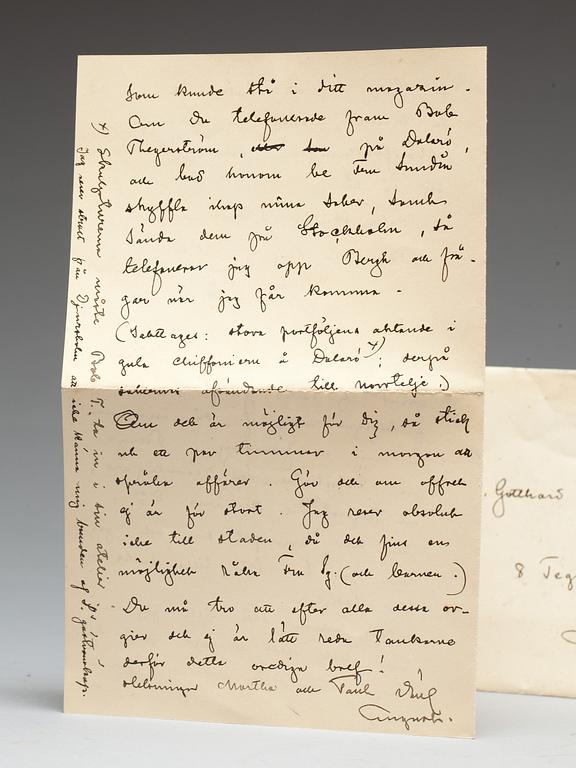 som kunde stå i ditt magasin.
Om du telefonerade fram Bob
Thegerström, på Dalarö,
och bad honom be Fem Sundin
skyffla ihop mina saker, samt
sända dem på Stockholm, så
telefonerar jag opp Bergh och frå-
gar när jag får komma.
(Taktlaget: stora portföljens aktande i
gula chiffoniern å Dalarö x); derpå
afsändande till Norrtelje.)
Om det är möjligt för dig, så stick
ut ett par timmar i morgon att
språka affärer. Gör det om offret
ej är för stort. Jag reser absolut
icke till staden, då det fins en
möjlighet råka Fru Sg. (och barnen.)
Du må tro att efter alla dessa or-
gier det ej är lätt reda tankarne
derför detta orediga bref!
Helsningar Martha och Paul
August.
x) Skulpturerna måste Bob T. ta in i sin atelier
Jag reser straxt från Djursholm att icke känna mig bunden af gästvänskap.
Gotthard
8 Teg